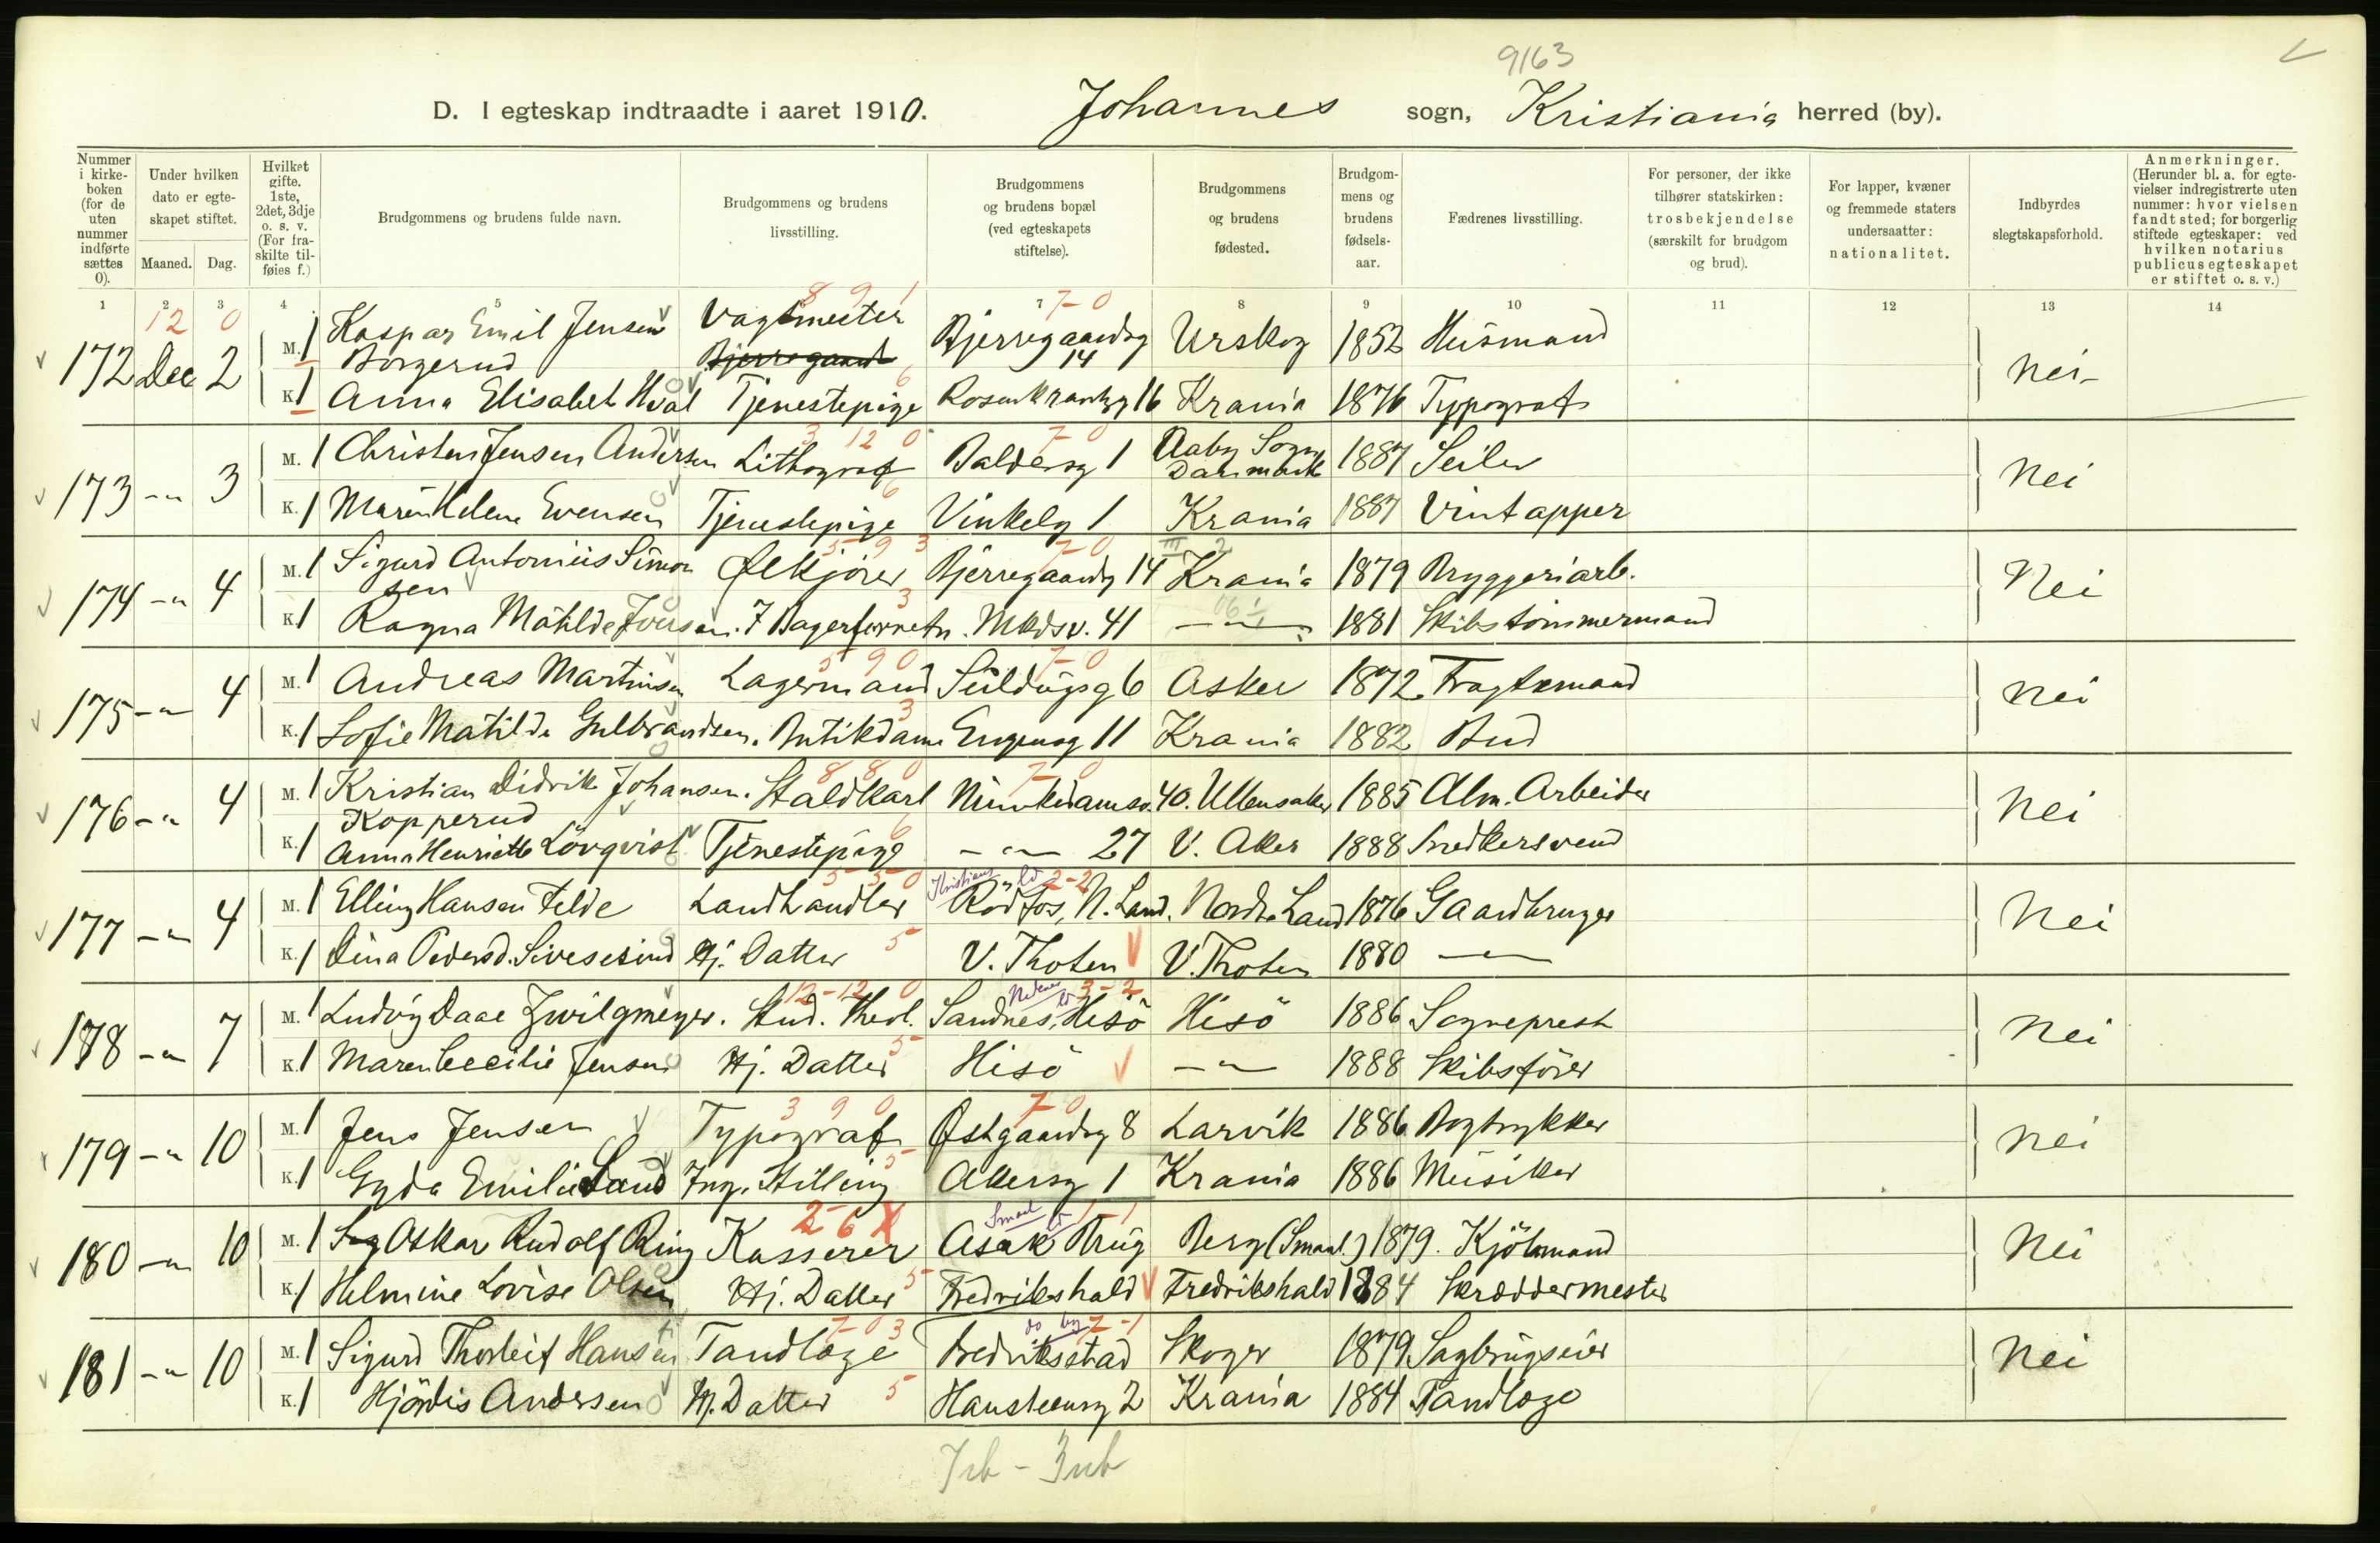 9163
D. I egteskap indtraadte i aaret 1910. Johannes sogn, Kristiania herred (by).
Nummer i kirke-boken (for de uten nummer indførte sættes 0).
Under hvilken dato er egte-skapet stiftet.
Maaned. Dag.
Hvilket gifte. 1ste, 2det, 3dje o. s. v. (For fra-skilte til-føies f.)
Brudgommens og brudens fulde navn.
Brudgommens og brudens livsstilling.
Brudgommens og brudens bopæl (ved egteskapets stiftelse).
Brudgommens og brudens fødested.
Brudgom-mens og brudens fødsels-aar.
Fædrenes livsstilling.
For personer, der ikke tilhører statskirken: trosbekjendelse (særskilt for brudgom og brud).
For lapper, kvæner og fremmede staters undersaatter: nationalitet.
Indbyrdes slegtskapsforhold.
Anmerkninger. (Herunder bl. a. for egte-vielser indregistrerte uten nummer: hvor vielsen fandt sted; for borgerlig stiftede egteskaper: ved hvilken notarius publicus egteskapet er stiftet o. s. v.)
1 2 3 4 5 7 8 9 10 11 12 13 14
12 0 8 9 1 7-0
172 Dec 2 M. 1 Kaspar Emil Jensen Borgerud Vagtmester Bjerregaardsg 14 Urskog 1852 Husmand nei-
Bjerregaard
K. 1 Anna Elisabet Hval Tjenestepige 6 Rosenkrantzg 16 Krania 1876 Typograf
3 12 0 7-0
173 -"- 3 M. 1 Christen Jensen Andersen Lithograf Baldersg 1 Aaby Sogn Danmark 1887 Seiler Nei
K. 1 Maren Helene Evensen Tjenestepige 6 Vinkelg 1 Krania 1887 Vintapper
5 9 3 7 0 III 2
174 -"- 4 M. 1 Sigurd Antonius Simonsen Ølkjører Bjerregaardsg 14 Krania 1879 Bryggeriarb. Nei
K. 1 Ragna Mathilde Jonsen. 3 Mkdsv. 41 -"- 1881 Skibstømmermand
5 9 0 7-0
175 -"- 4 M. 1 Andreas Martinsen Lagermand 6 Asker 1872 Fragtemand nei
K. 1 Sofie Matilde Gulbrandsen. Butikdame 3 Eugensg 11 Krania 1882 Bud
8 8 0 7-0
176 -"- 4 M. 1 Kristian Didrik Johansen. Kopperud Staldkarl Munkedamsv. 40. Ullensaker 1885 Alm. Arbeider Nei
K. 1 Anna Henriette Lövqvist Tjenestepige 6 -"- 27 V. Aker 1888 Snedkersvend
5-5-0 Kristians 2-2
177 -"- 4 M. 1 Elling Hansen Felde Landhandler Rödfos, N. Land. Nordre Land 1876 Gaardbruger Nei
K. 1 Dina Pedersd. Sivesind Hj. Datter 5 V. Thoten V. Thoten 1880 -"-
12-12 0 Nedenes 3-2
178 -"- 7 M. 1 Ludvig Daae Zwilgmeyer. Stud. theol. Sandnes, Hisö Hisö 1886 Sogneprest Nei
K. 1 Maren Cecilie Jensen Hj. Datter 5 Hisö -"- 1888 Skibsförer
3 9 0 7-0
179 -"- 10 M. 1 Jens Jensen Typograf Østgaardsg 8 Larvik 1886 Bogtrykker nei
K. 1 Gyda Emilie Sand Ing. Stilling 5 Akersg 1 Krania 1886 Musiker
2-6 X Smaal 1-1
180 -"- 10 M. 1 Oskar Rudolf Ring Kasserer Asak Brug Berg (Smaal.) 1879. Kjöbmand Nei
K. 1 Helmine Lovise Olsen Hj. Datter 5 Fredrikshald Fredrikshald 1884 Skræddermester
7-0 3 do by 2-1
181 -"- 10 M. 1 Sigurd Thorleif Hansen Tandlæge Fredriksstad Skoger 1879 Sagbrugseier Nei
K. 1 Hjördis Andersen Hj. Datter 5 Hansteensg 2 Krania 1884 Tandlæge